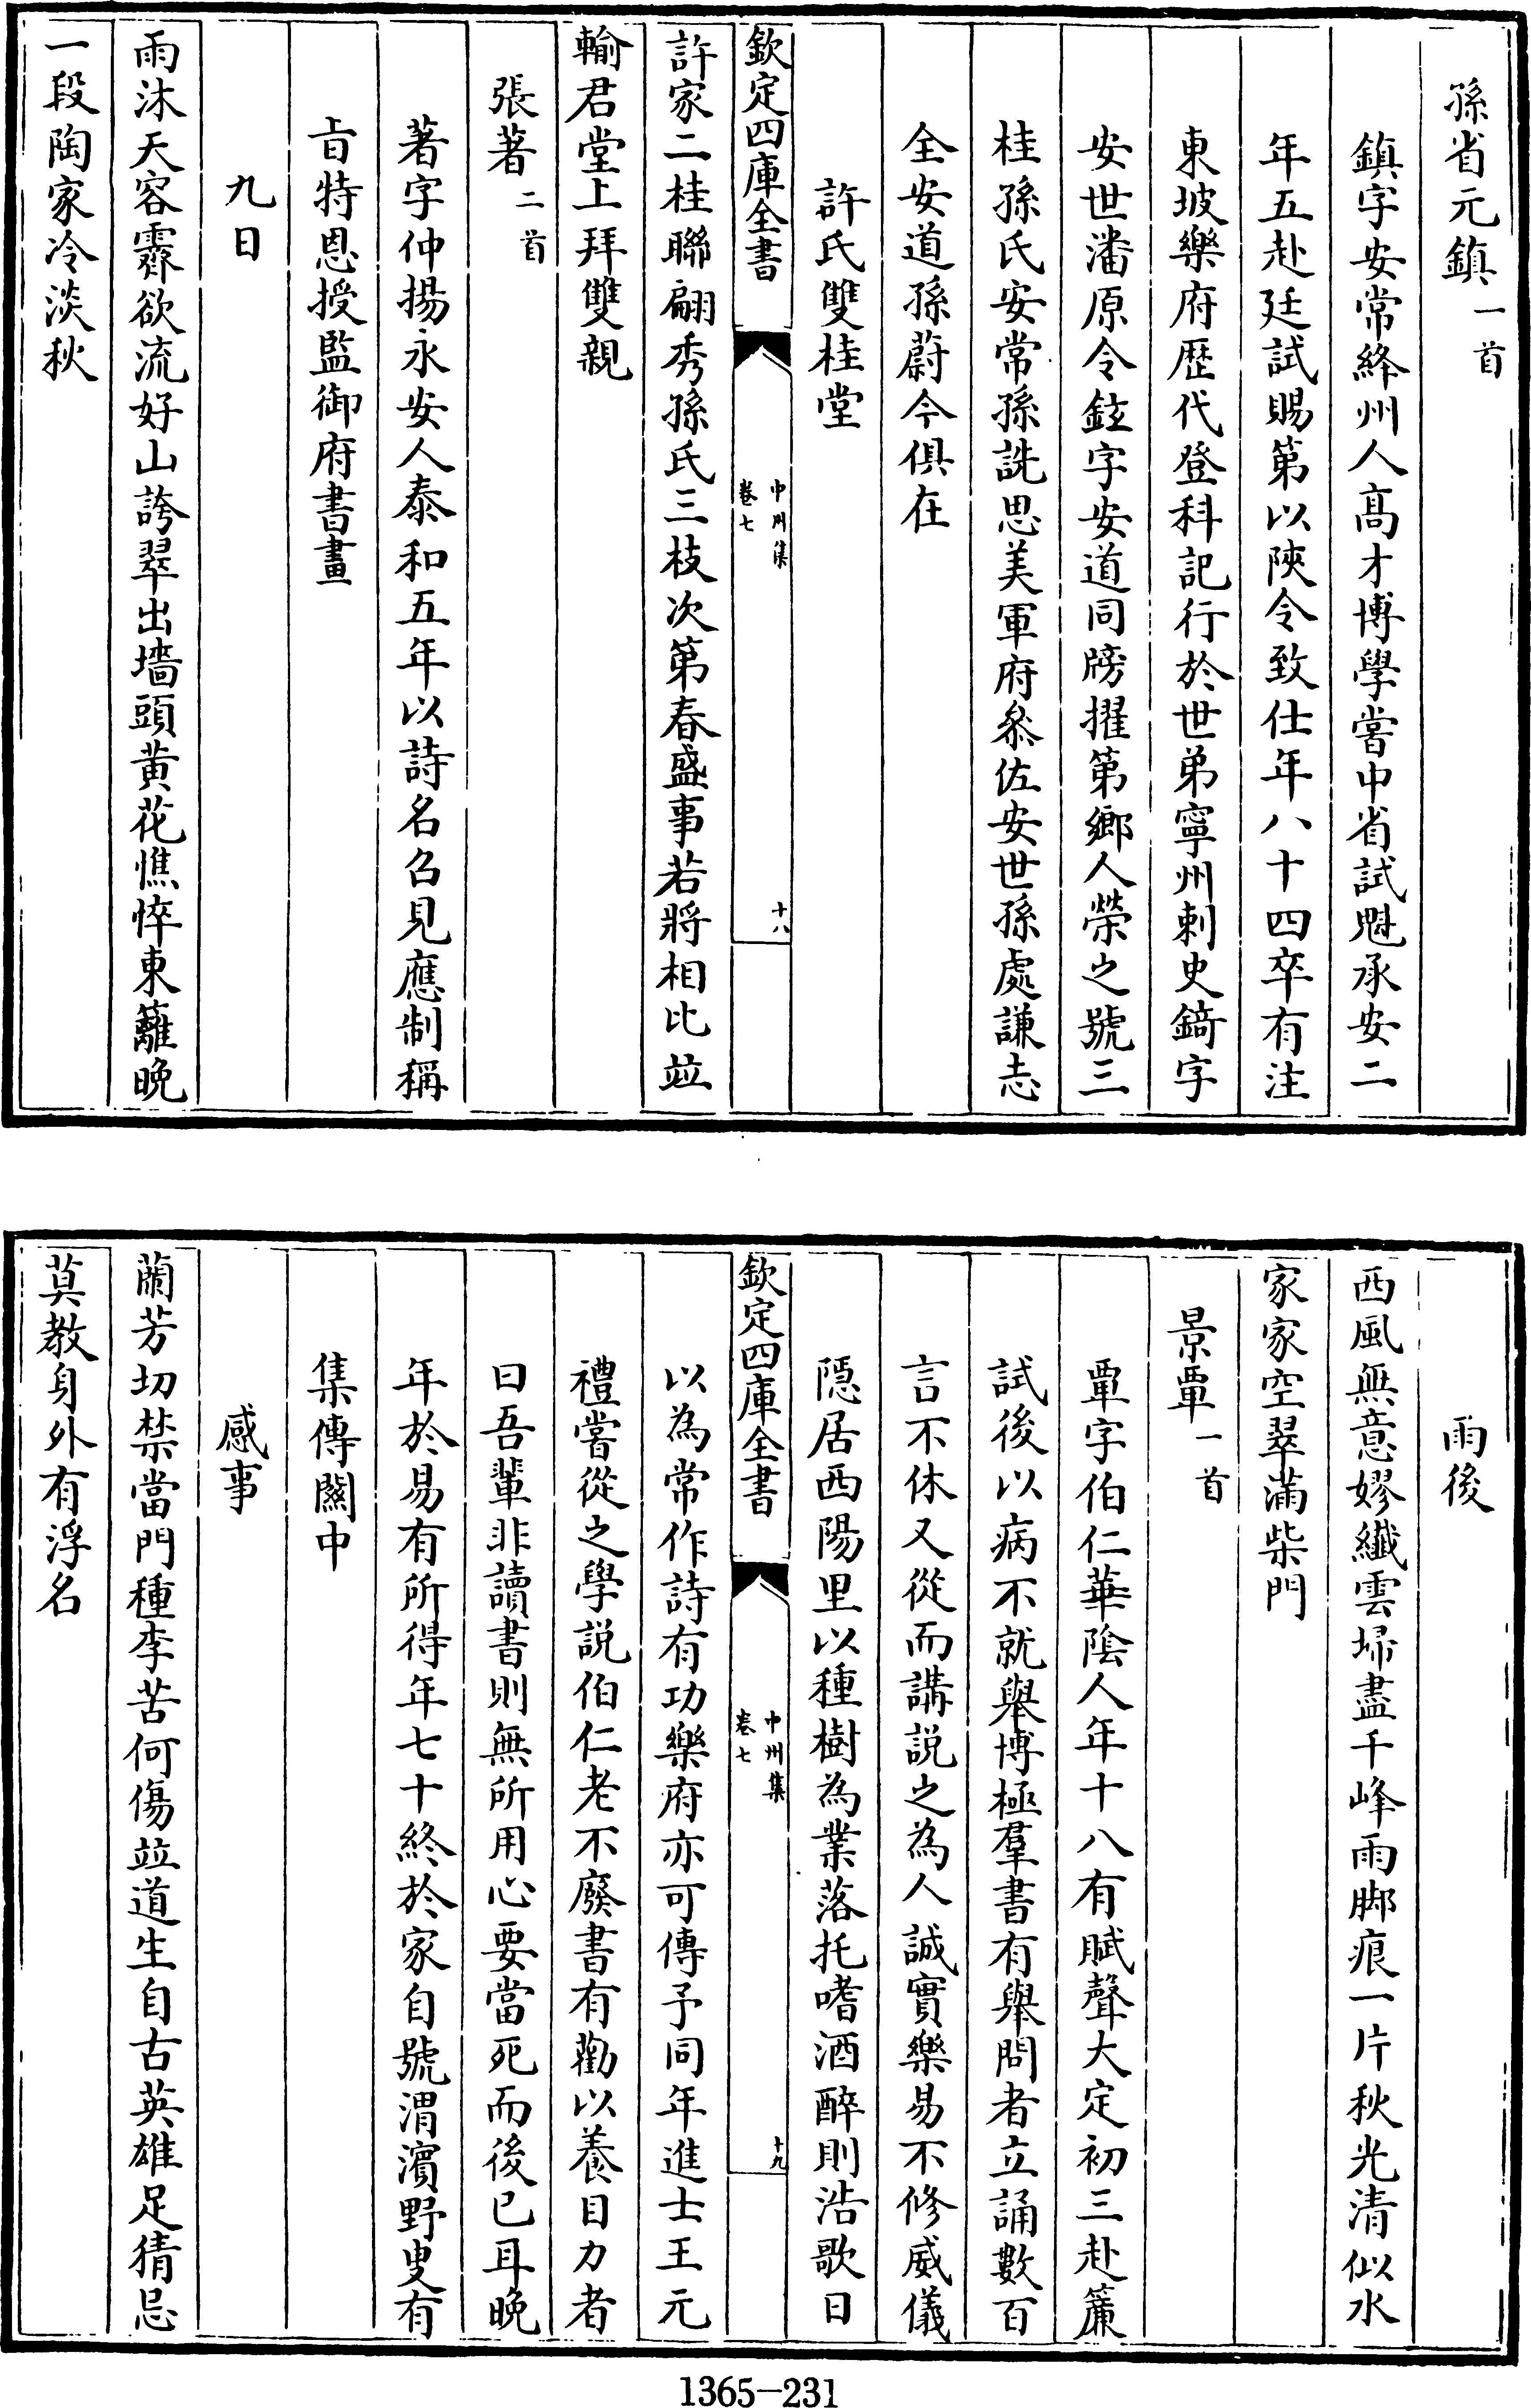 孫省元鎮一首
鎮字安常絳州人髙才博學嘗中省試魁承安二
年五赴廷試賜第以陜令致仕年八十四卒有注
東坡樂府歴代登科記行於世弟寧州刺史錡字
安世潘原令鉉字安道同牓擢第鄉人榮之號三
桂孫氏安常孫詵思美軍府叅佐安世孫處謙志
全安道孫蔚今俱在
許氏雙桂堂
欽定四庫全書
中州集
卷七
十八
許家二桂聯翩秀孫氏三枝次第春盛事若將相比並
輸君堂上拜雙親
張著二首
著字仲揚永安人泰和五年以詩名召見應制稱
㫖特恩授監御府書畫
九日
雨沐天容霽欲流好山誇翠出墻頭黄花憔悴東籬晚
一段陶家冷淡秋
雨後
西風無意嫪纎雲埽盡千峰雨脚痕一片秋光清似水
家家空翠滿柴門
景覃一首
覃字伯仁華陰人年十八有賦聲大定初三赴簾
試後以病不就舉博極羣書有舉問者立誦數百
言不休又從而講説之為人誠實樂易不修威儀
隠居西陽里以種樹為業落托嗜酒醉則浩歌日
欽定四庫全書
中州集
卷七
十九
以為常作詩有功樂府亦可傳予同年進士王元
禮嘗從之學説伯仁老不廢書有勸以養目力者
曰吾輩非讀書則無所用心要當死而後已耳晚
年於易有所得年七十終於家自號渭濵野叟有
集傳關中
感事
蘭芳切禁當門種李苦何傷並道生自古英雄足猜忌
莫教身外有浮名
1365-231